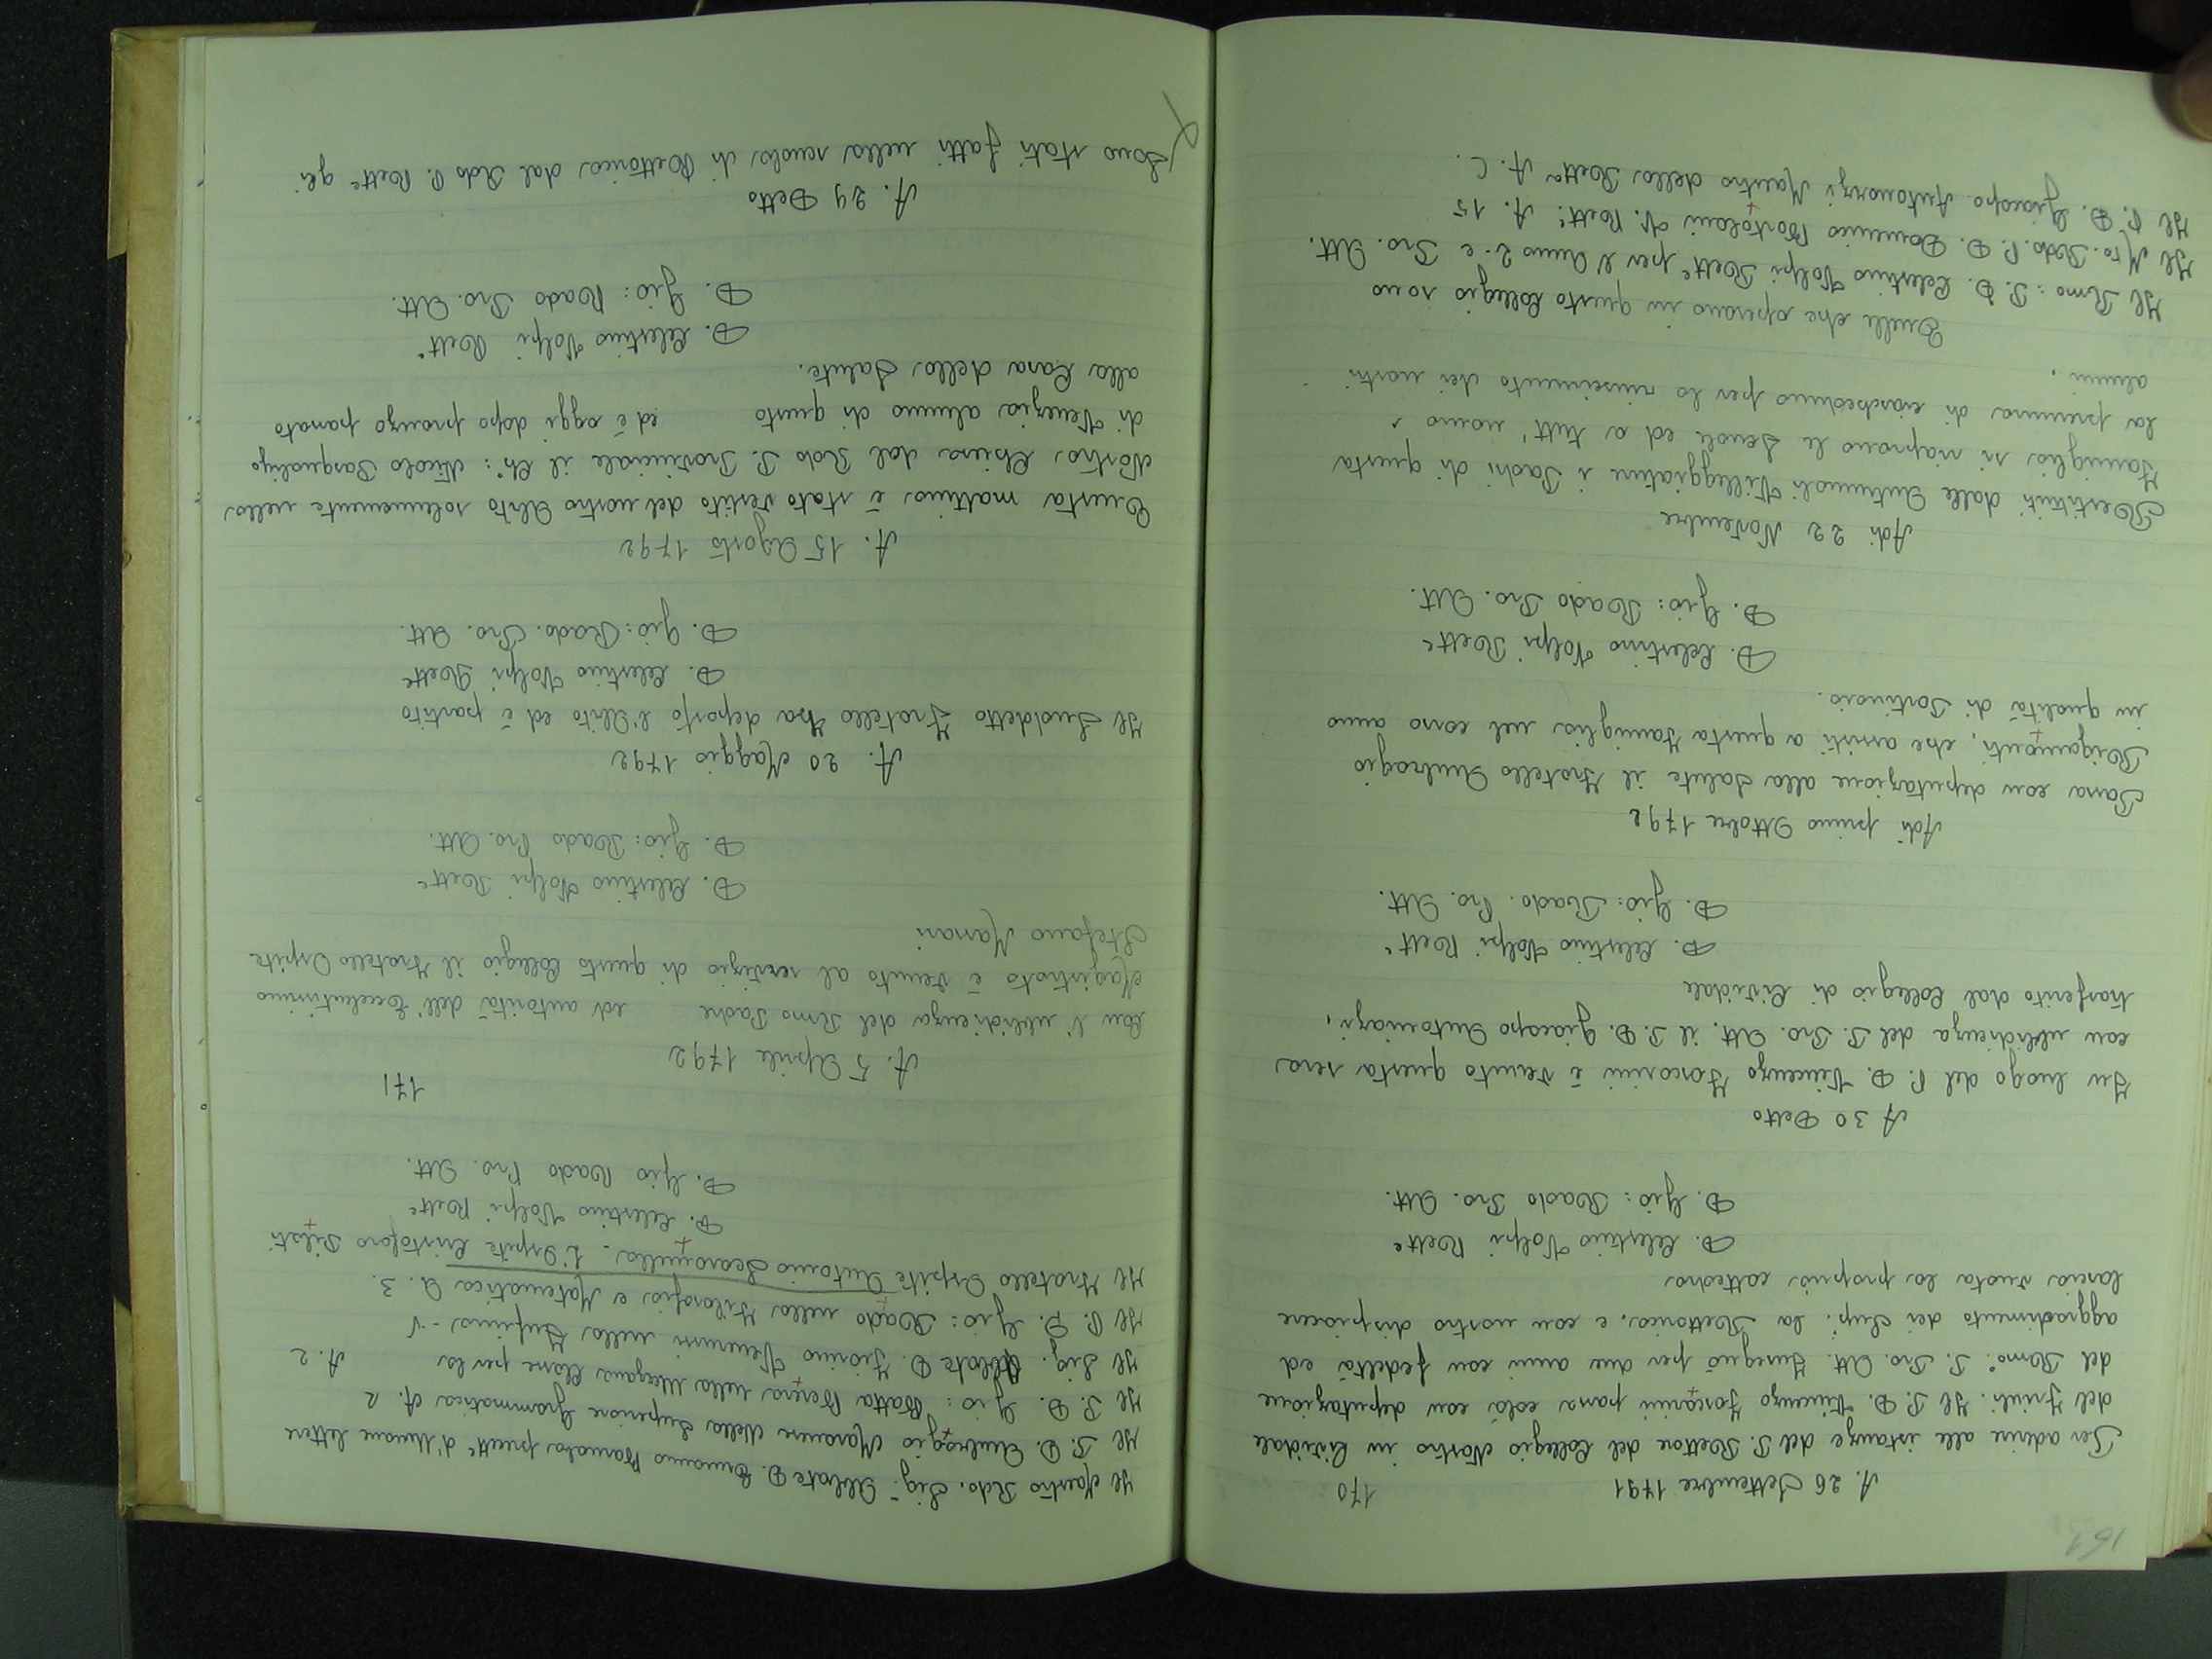 161
A. 26 Settembre 1791 170
Per aderire alle istanze del P. Rettore del Collegio Nostro in Cividale
del Friuli. Il P. D. Vincenzo Foscarini passa colà con deputazione
del Rmo. P. Pro. Att. Insegnò per due anni con fedeltà ed
aggradimento dei Sup. la Rettorica, e con nostro dispiacere
lascia vuota la propria cattedra
D. Celestino Volpi Rett.e
D. Gio: Rado Pro. Att.
A 30 Detto
In luogo del P. D. Vincenzo Foscarini è venuto questa sera
con ubbidienza del P. Pro. Att. il P. D. Giacopo Antoniazzi,
trasferito dal Collegio di Cividale
D. Celestino Volpi Rett.e
D. Gio: Rado. Pro. Att.
Adì primo Ottobre 1792
Passa con deputazione alla Salute il Fratello Ambrogio
Rigamonti, che assistì a questa Famiglia nel corso anno
in qualità di Portinaio.
D. Celestino Volpi Rett.e
D. Gio: Rado Pro. Att.
Adi 22 Novembre
Restituiti dalle Autunnali Villeggiature i Padri di questa
Famiglia si riaprono le Scuole ed a tutt'uomo
la premura di ciascheduno per lo riuscimento dei nostri
alunni.
Quelli che operano in questo Collegio sono
Il Rmo: P. D. Celestino Volpi Rett.e per l'Anno 2. e Pro. Att.
Il Mto. Rdo P. D. Domenico Bortolani V. Rett.e A. 15
Il P. D. Giacopo Antoniazzi Maestro della Rett.a A. C.
Il Maestro Rdo. Sig. Abbate D. Ermanno prett.e d'Umane lettere
Il P. D. Ambrogio Maranese della Superiore Grammatica A. 2
Il P. D. Gio: Batta Berera nella Mezzana Classe per la A. 2
Il Sig. Abbate D. Fiorino Venerucci nella Infima - V
Il P. D. Gio: Rado nella Filosofia e Matematica A. 3.
Il Fratello Ospite Antonio Scaramella. L'Ospite Cristoforo Pilati
D. Celestino Volpi Rett.e
D. Gio Rado Pro. Att.
171
A. 5 Aprile 1792
Con l'ubbidienza del Rmo Padre ed autorità dell'Eccelentissimo
Magistrato è venuto al servizio di questo Collegio il Fratello Ospite
Stefano Marsari
D. Celestino Volpi Rett.e
D. Gio: Rado Pro. Att.
A. 20 Maggio 1792
Il Suddetto Fratello ha deposto l'Abito ed è partito
D. Celestino Volpi Rett.e
D. Gio: Rado. Pro. Att.
A. 15 Agosto 1792
Questa mattina è stato vestito del nostro Abito solennemente nella
Nostra Chiesa dal Rdo P. Provinciale il Ch.o: Nicolò Pasqualigo
di Venezia alunno di questo ed è oggi dopo pranzo passato
alla Casa della Salute.
D. Celestino Volpi Rett.e
D. Gio: Rado Pro. Att.
A. 29 Detto
Sono stati fatti nella scuola di Rettorica dal Rdo P. Rett.e gli